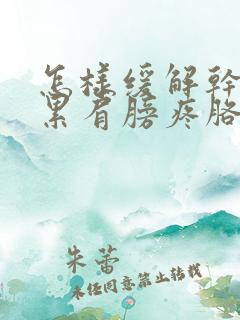 怎样缓解干
累肩膀疼胳
朱蕾
未经同意禁止转载